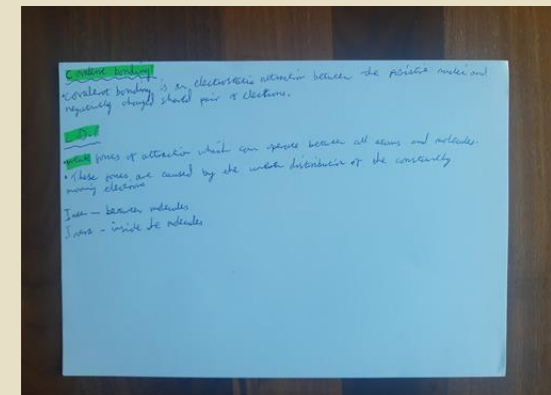 Covalent bonding:
• Covalent bonding is an electrostatic attraction between the positive nuclei and
negatively charged shared pair of electrons.
L.D.F
• Weak forces of attraction which can operate between all atoms and molecules.
• These forces are caused by the uneven distribution of the constantly
moving electrons
Inter – between molecules
Intra – inside the molecules